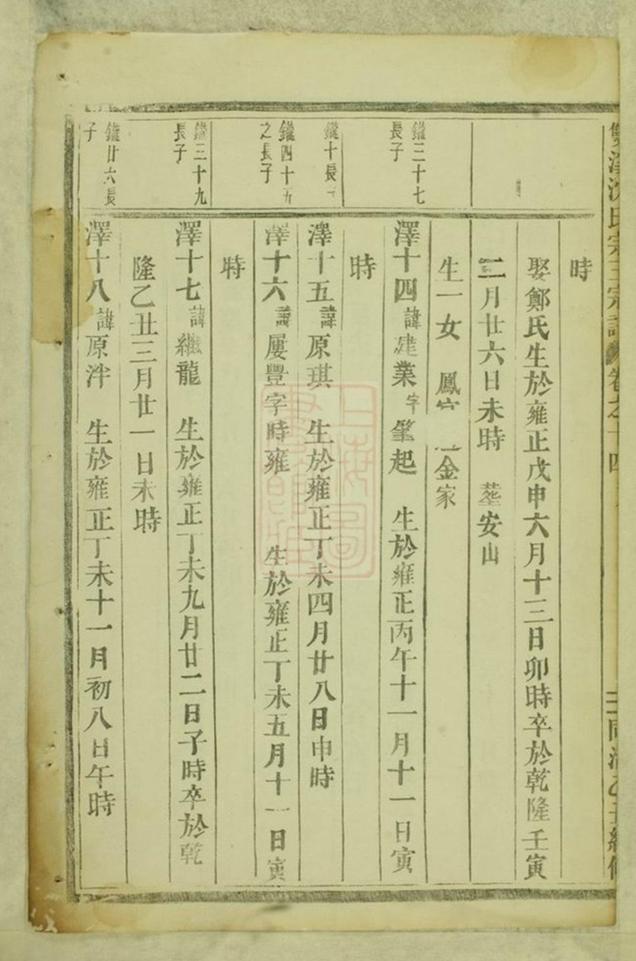 時
娶鄭氏生於雍正戊申六月十三日卯時卒於乾隆壬寅
二月廿六日未時 塟安山
生一女 鳳 金家
鐵三十七
長子
澤十四諱建業字肇起 生於雍正丙午十一月十一日寅
時
鐵十長子
澤十五諱原琪 生於雍正丁未四月廿八日申時
鐵四十五
之長子
澤十六諱屢豐字時雍 生於雍正丁未五月十一日寅
時
鐵三十九
長子
澤十七諱繼龍 生於雍正丁未九月廿二日子時卒於乾
隆乙丑三月廿一日未時
鐵廿六長
子
澤十八諱原泮 生於雍正丁未十一月初八日午時